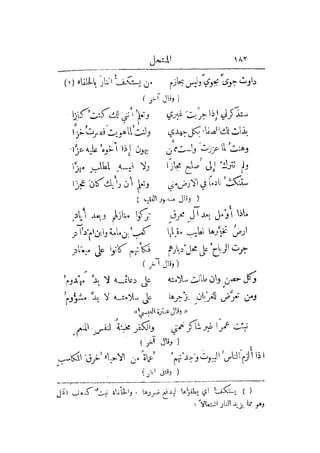 ١٨٢ المنتحل
داويت جوىً بجوىً وليس بحازم من يستكف النار بالحلفاء (١)
( وقال آخر )
ستذكرني إذا جربت غيري وتعلم أنني لك كنت كنزا
بذلت لك الصفاء بكل جهدي وكنت كما هويت فصرت خزا
وهنت لما عززت ولست ممن يهون إذا أخوه عليه عزا
ولم تترك إلى صلح مجازا ولا فيه لمطلب مهزا
ستنكث نادما في الارض مني وتعلم أن رأيك كان عجزا
( وقال منصور الفقيه )
ماذا أؤمل بعد آل محرق تركوا منازلهم وبعد أياد
ارض تخيرها لطيب مقيلها كعب بن مامة وابن ام دؤاد
جرت الرياح على محل ديارهم فكأنهم كانوا على ميعاد
( وقال آخر )
وكل حصن وان طالت سلامته على دعائمه لا بد مهدوم
ومن تعرض للغربان يزجرها على سلامته لا بد مشؤوم
( وقال عنترة العبسي )
نبئت عمرا غير شاكر نعمتي والكفر مخبثة لنفس المنعم
( وقال آخر )
اذا ألزم الناس البيوت وجدتهم عماة من الاخبار خرق المكاسب
( وقال آخر )
( ) يستكف اي يطفؤها ليدفع ضررها . والحلفاء نبت
وهو مما يزيد النار اشتعالا :